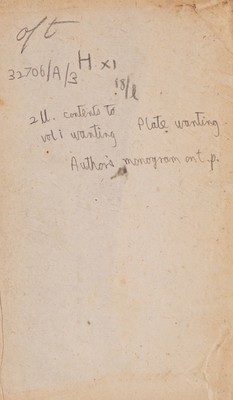 oft
H XI
32706/A/3
18/l
2 ll. contents to
vol i wanting
Plate wanting.
Author's monogram on t.p.